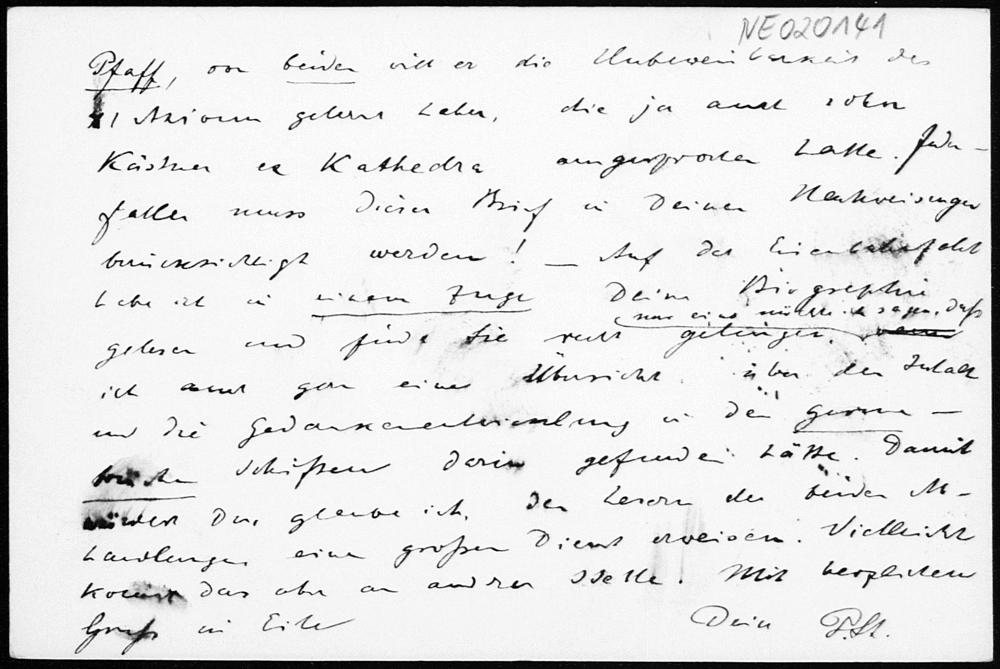 NE020141
Pfaff, von beiden will er die Unbeweisbarkeit des
11 Axioms gelernt haben, die ja auch schon
Kästner ex Kathedra ausgesprochen hatte. Jeden-
falles muss dieser Brief in Deinen Nachweisungen
berücksichtigt werden! — Auf der Eisenbahnfahrt
habe ich in einem Zuge Deine Biographie
nur eins möchte ich sagen, dass
gelesen und finde sie recht gelungen,
ich auch gern eine Übersicht über den Inhalt
und die Gedankenentwicklung in den geome-
trischen Schriften darin gefunden hätte. Damit
würdest Du, glaube ich, den Lesern der beiden Ab-
handlungen einen großen Dienst erweisen. Vielleicht
kommt das aber an andrer Stelle. Mit herzlichem
Gruss in Eile Dein P. St.